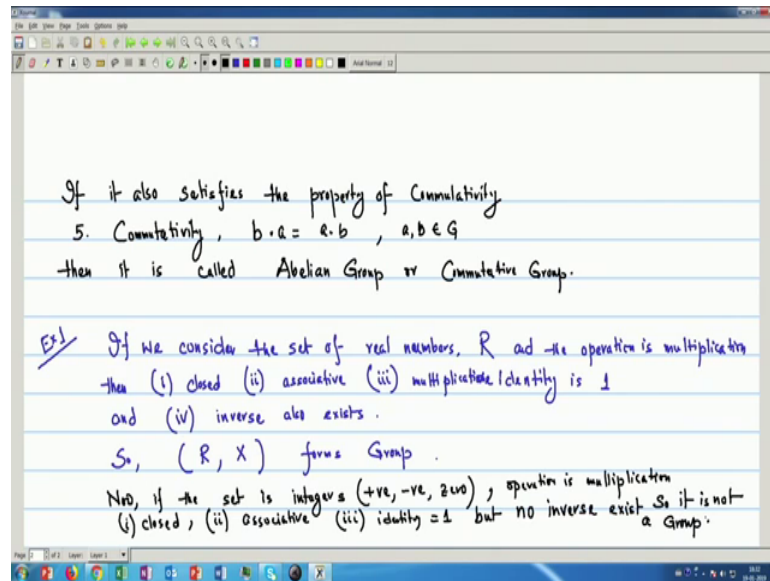 Journal
File Edit View Page Tools Options Help
Arial Normal 12
If it also satisfies the property of Commutativity
5. Commutativity, b · a = a · b , a, b ∈ G
then it is called Abelian Group or Commutative Group.
Ex1 If we consider the set of real numbers, R and the operation is multiplication
then (i) closed (ii) associative (iii) multiplicative Identity is 1
and (iv) inverse also exists.
So, (R, X) forms Group.
Now, if the set is integers (+ve, -ve, zero), operation is multiplication
(i) closed, (ii) associative (iii) identity = 1 but no inverse exist So it is not
a Group.
Page 2 of 2 Layer: Layer 1